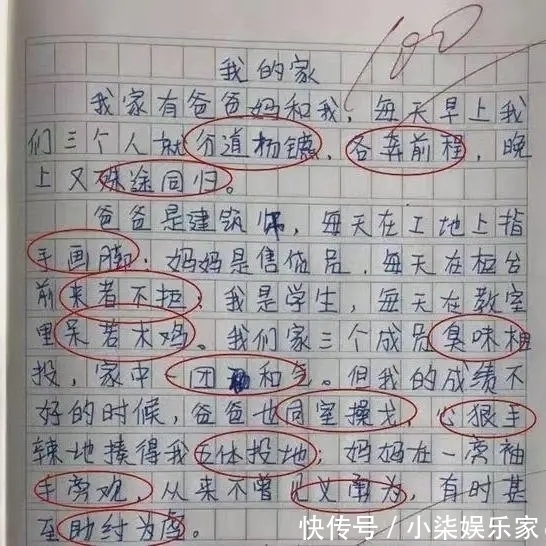 100
我的家
我家有爸爸妈和我，每天早上我
们三个人就分道杨镳，各奔前程，晚
上又殊途同归。
爸爸是建筑师，每天在工地上指
手画脚；妈妈是售货员，每天在柜台
前来者不拒；我是学生，每天在教室
里呆若木鸡。我们家三个成员臭味相
投，家中一团和气。但我的成绩不
好的时候，爸爸也同室操戈，心狠手
辣地揍得我五体投地；妈妈在一旁袖
手旁观，从来不曾见义勇为，有时甚
至助纣为虐。
快传号／小柒娱乐家